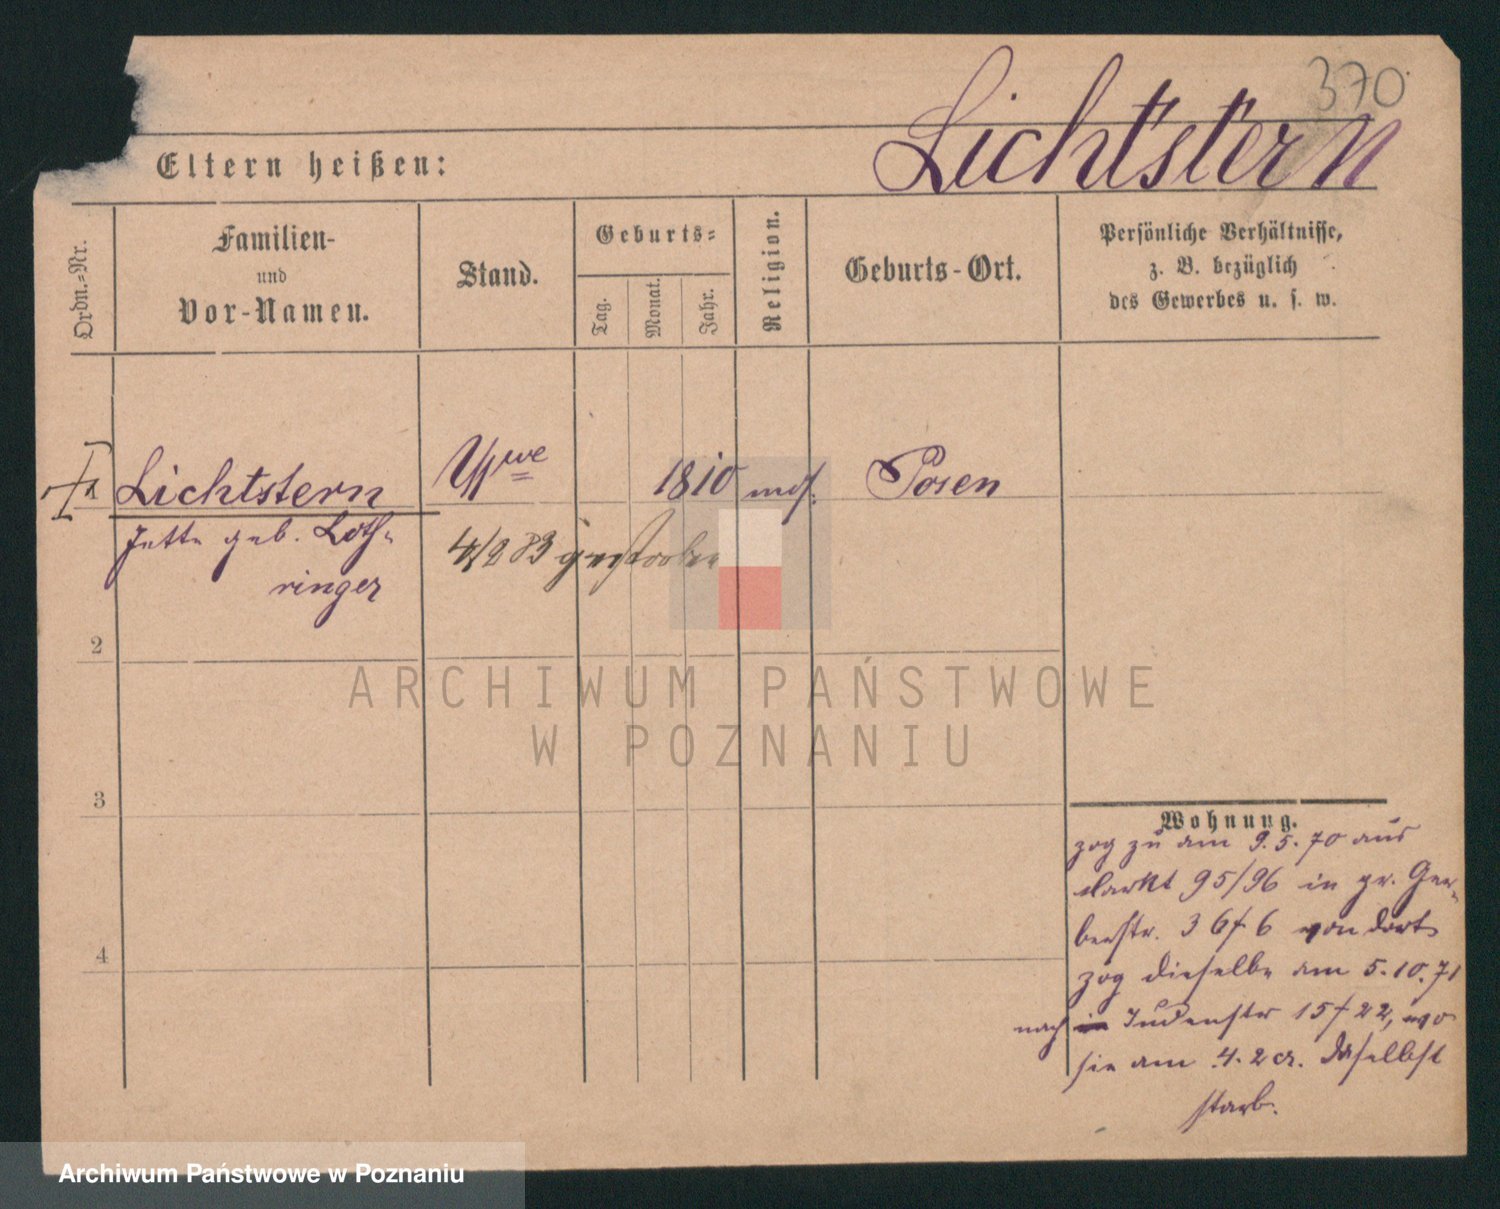 370
Lichtstern
Eltern heißen:
Ordn.-Nr.
Familien-
und
Vor-Namen.
Stand.
Geburts-
Tag.
Monat.
Jahr.
Religion.
Geburts-Ort.
Persönliche Verhältnisse,
z. B. bezüglich
des Gewerbes u. s. w.
Lichtstern
Wwe
1810
mos.
Posen
Jette geb. Loth-
ringer
4/2 83 gestorben
2
3
4
ARCHIWUM PAŃSTWOWE
W POZNANIU
Wohnung.
zog zu am 9.5.70 aus
Markt 95/96 in gr. Ger-
berstr. 36/6 von dort
zog dieselbe am 5.10.71
nach in Judenstr 15/22, wo
sie am 4.2 cr. daselbst
starb.
Archiwum Państwowe w Poznaniu